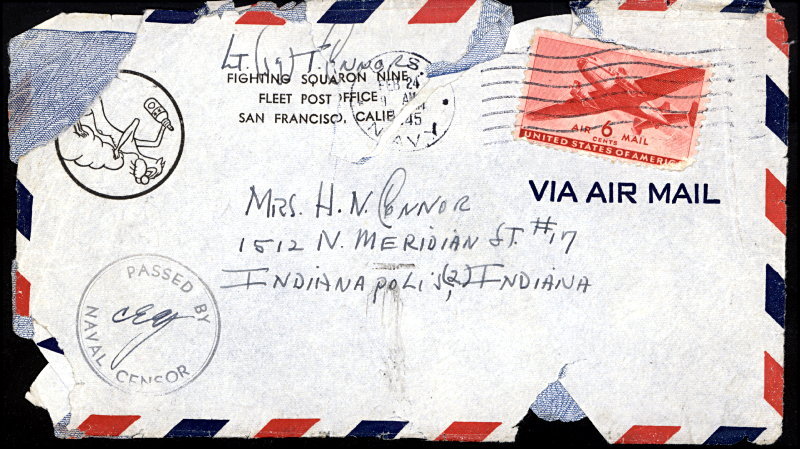 Lt. (jg) T. Connor
FIGHTING SQUARON NINE
FLEET POST OFFICE
SAN FRANCISCO, CALIF
FEB 24
AM
1945
NAVY
AIR 6 MAIL
CENTS
UNITED STATES OF AMERIC
VIA AIR MAIL
MRS. H. N. CONNOR
1512 N. MERIDIAN ST. #17
INDIANAPOLIS, (2) INDIANA
PASSED BY
NAVAL CENSOR